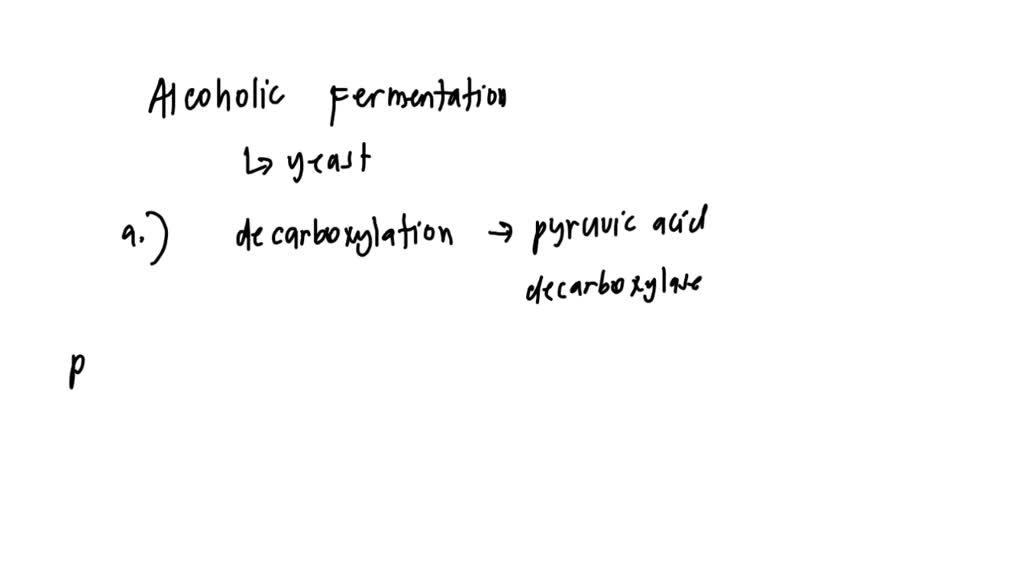 Alcoholic Fermentation
↳ yeast
a.) decarboxylation → pyruvic acid
decarboxylase
p